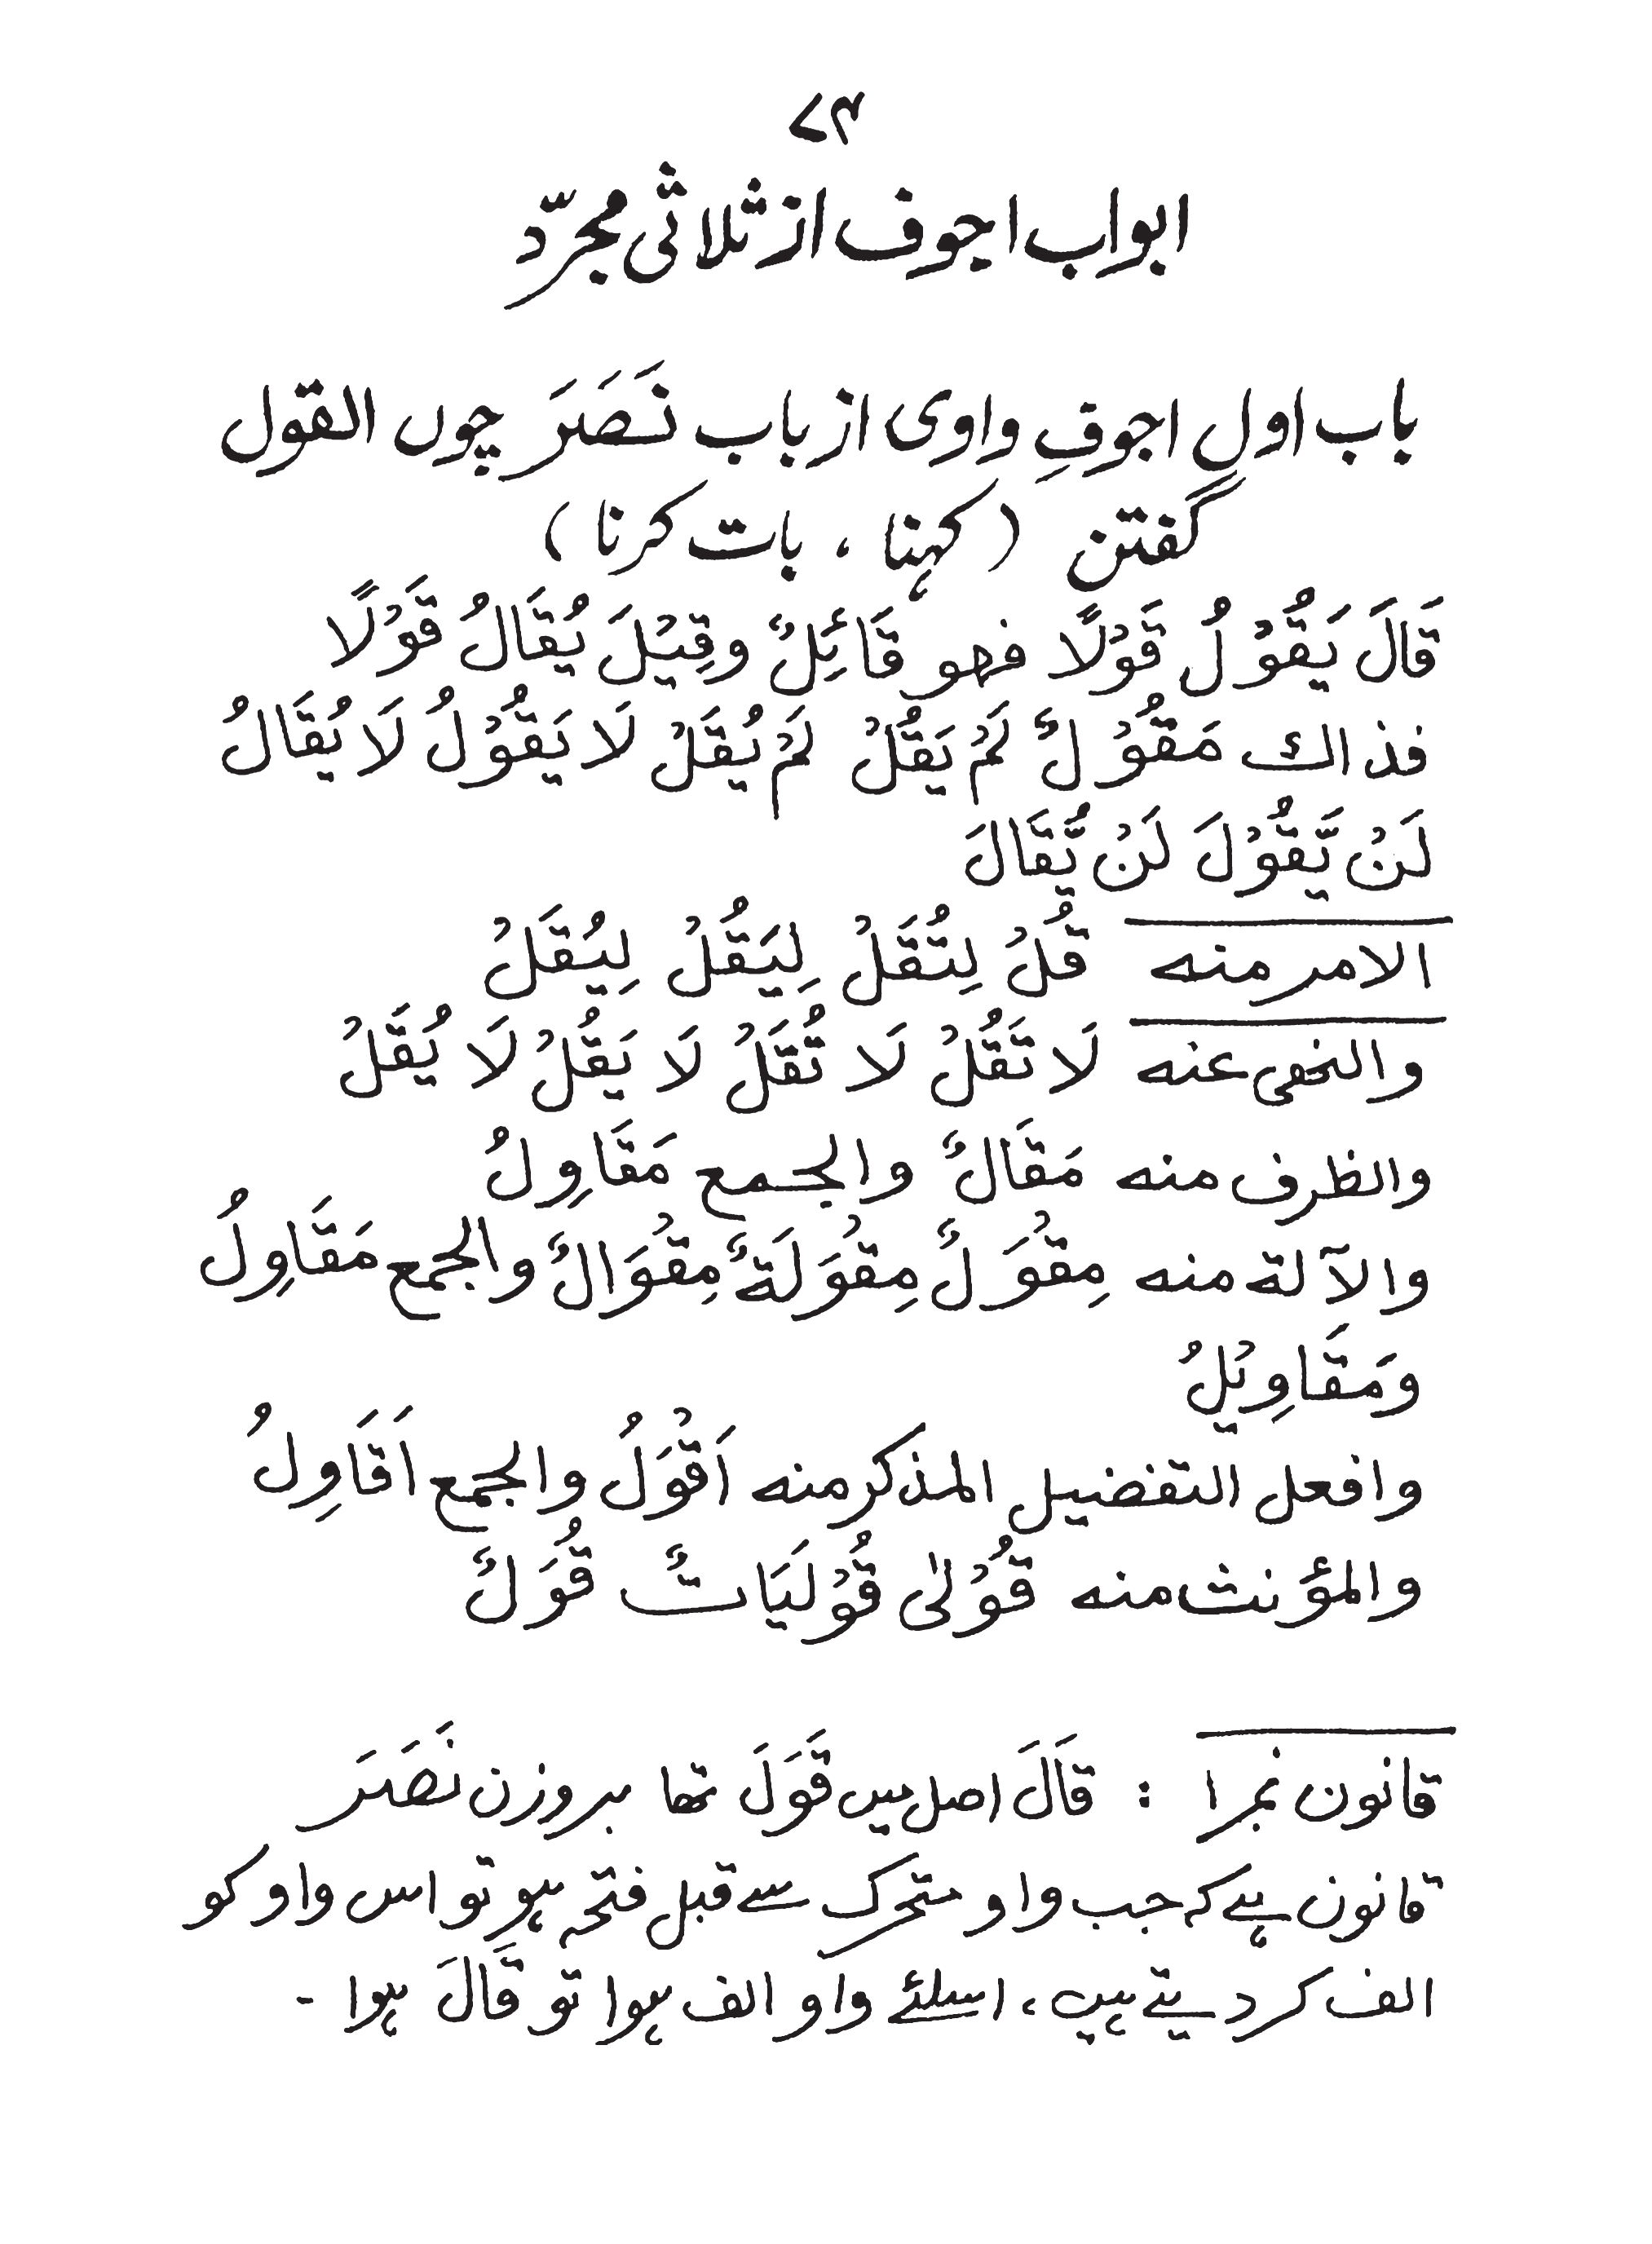 ۷۴
ابواب اجوف از ثلاثی مجرّد
باب اول اجوفِ واوی از باب نَصَرَ چوں القول
گفتن (کہنا، بات کرنا)
قَالَ يَقُوْلُ قَوْلًا فهو قَائِلٌ وقِيْلَ يُقَالُ قَوْلًا
فذاك مَقُوْلٌ لَمْ يَقُلْ لَمْ يُقَلْ لَا يَقُوْلُ لَا يُقَالُ
لَنْ يَّقُوْلَ لَنْ يُّقَالَ
الامر منه قُلْ لِتُقَلْ لِيَقُلْ لِيُقَلْ
والنهی عنه لَا تَقُلْ لَا تُقَلْ لَا يَقُلْ لَا يُقَلْ
والظرف منه مَقَالٌ والجمع مَقَاوِلُ
والآلة منه مِقْوَلٌ مِقْوَلَةٌ مِقْوَالٌ والجمع مَقَاوِلُ
ومَقَاوِيْلُ
وافعل التفضيل المذكر منه اَقْوَلُ والجمع اَقَاوِلُ
والمؤنث منه قُوْلٰى قُوْلَيَاتٌ قُوَلٌ
قانون نمبر ۱ : قَالَ اصل میں قَوَلَ تھا بروزن نَصَرَ
قانون ہے کہ جب واو متحرک سے قبل فتحہ ہو تو اس واو کو
الف کر دیتے ہیں، اسلئے واو الف ہوا تو قَالَ ہوا -